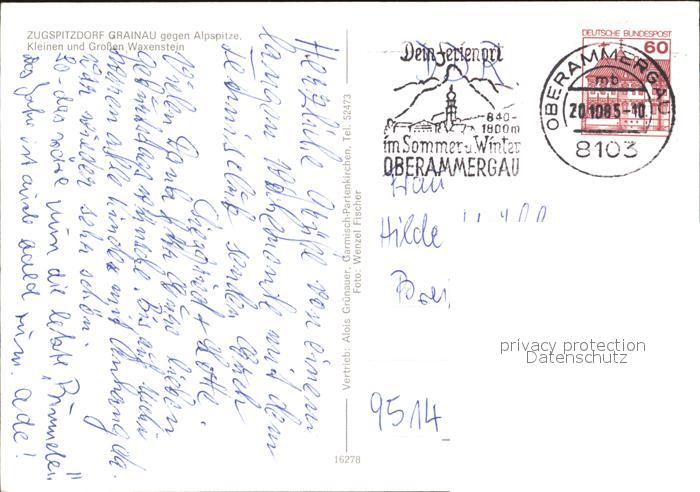 ZUGSPITZDORF GRAINAU gegen Alpspitze,
Kleinen und Großen Waxenstein
Herzliche Grüße von einem
langen Wochenende mit dem
Tennisclub senden Euch
Siegfried + Lotte.
Vielen Dank für Eure lieben
Geburtstagswünsche. Bis auf
waren alle Kinder mit Anhang da.
War wieder sehr schön.
So das wäre nun die letzte
das Jahr ist auch bald rum. Ade!
Vertrieb: Alois Grünauer, Garmisch-Partenkirchen, Tel. 52473
Foto: Wenzel Fischer
16278
Dein Ferienort
840-
1800m
im Sommer u. Winter
OBERAMMERGAU
DEUTSCHE BUNDESPOST
60
OBERAMMERGAU
mb
20.10.85-10
8103
Frau
Hilde
9514
privacy protection
Datenschutz